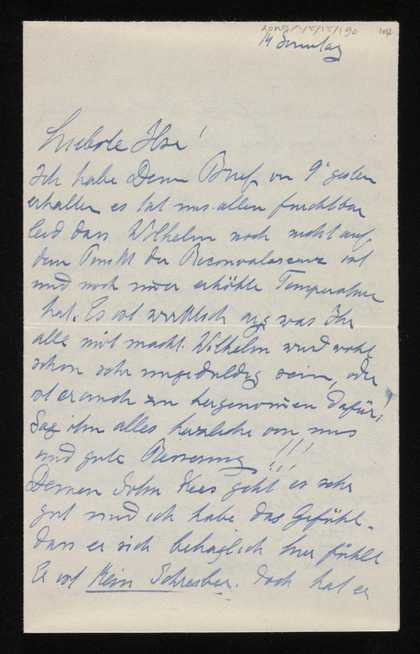 14 Sonntag
Liebste Ilse!
Ich habe Deinen Brief vom 9ᵗ gestern
erhalten es tut uns allen furchtbar
leid dass Wilhelm noch nicht auf
dem Punkt der Reconvalescenz ist
und noch immer erhöhte Temperatur
hat. Es ist wirklich arg was Ihr
alle mit macht. Wilhelm wird wohl
schon sehr ungeduldig sein, oder
ist er auch zu hergenommen dafür!
Sag ihm alles herzliche von uns
und gute Besserung!!!
Deinem Sohn geht es sehr
gut und ich habe das Gefühl
dass er sich behaglich hier fühlt
Er ist kein Schreiber. Doch hat er